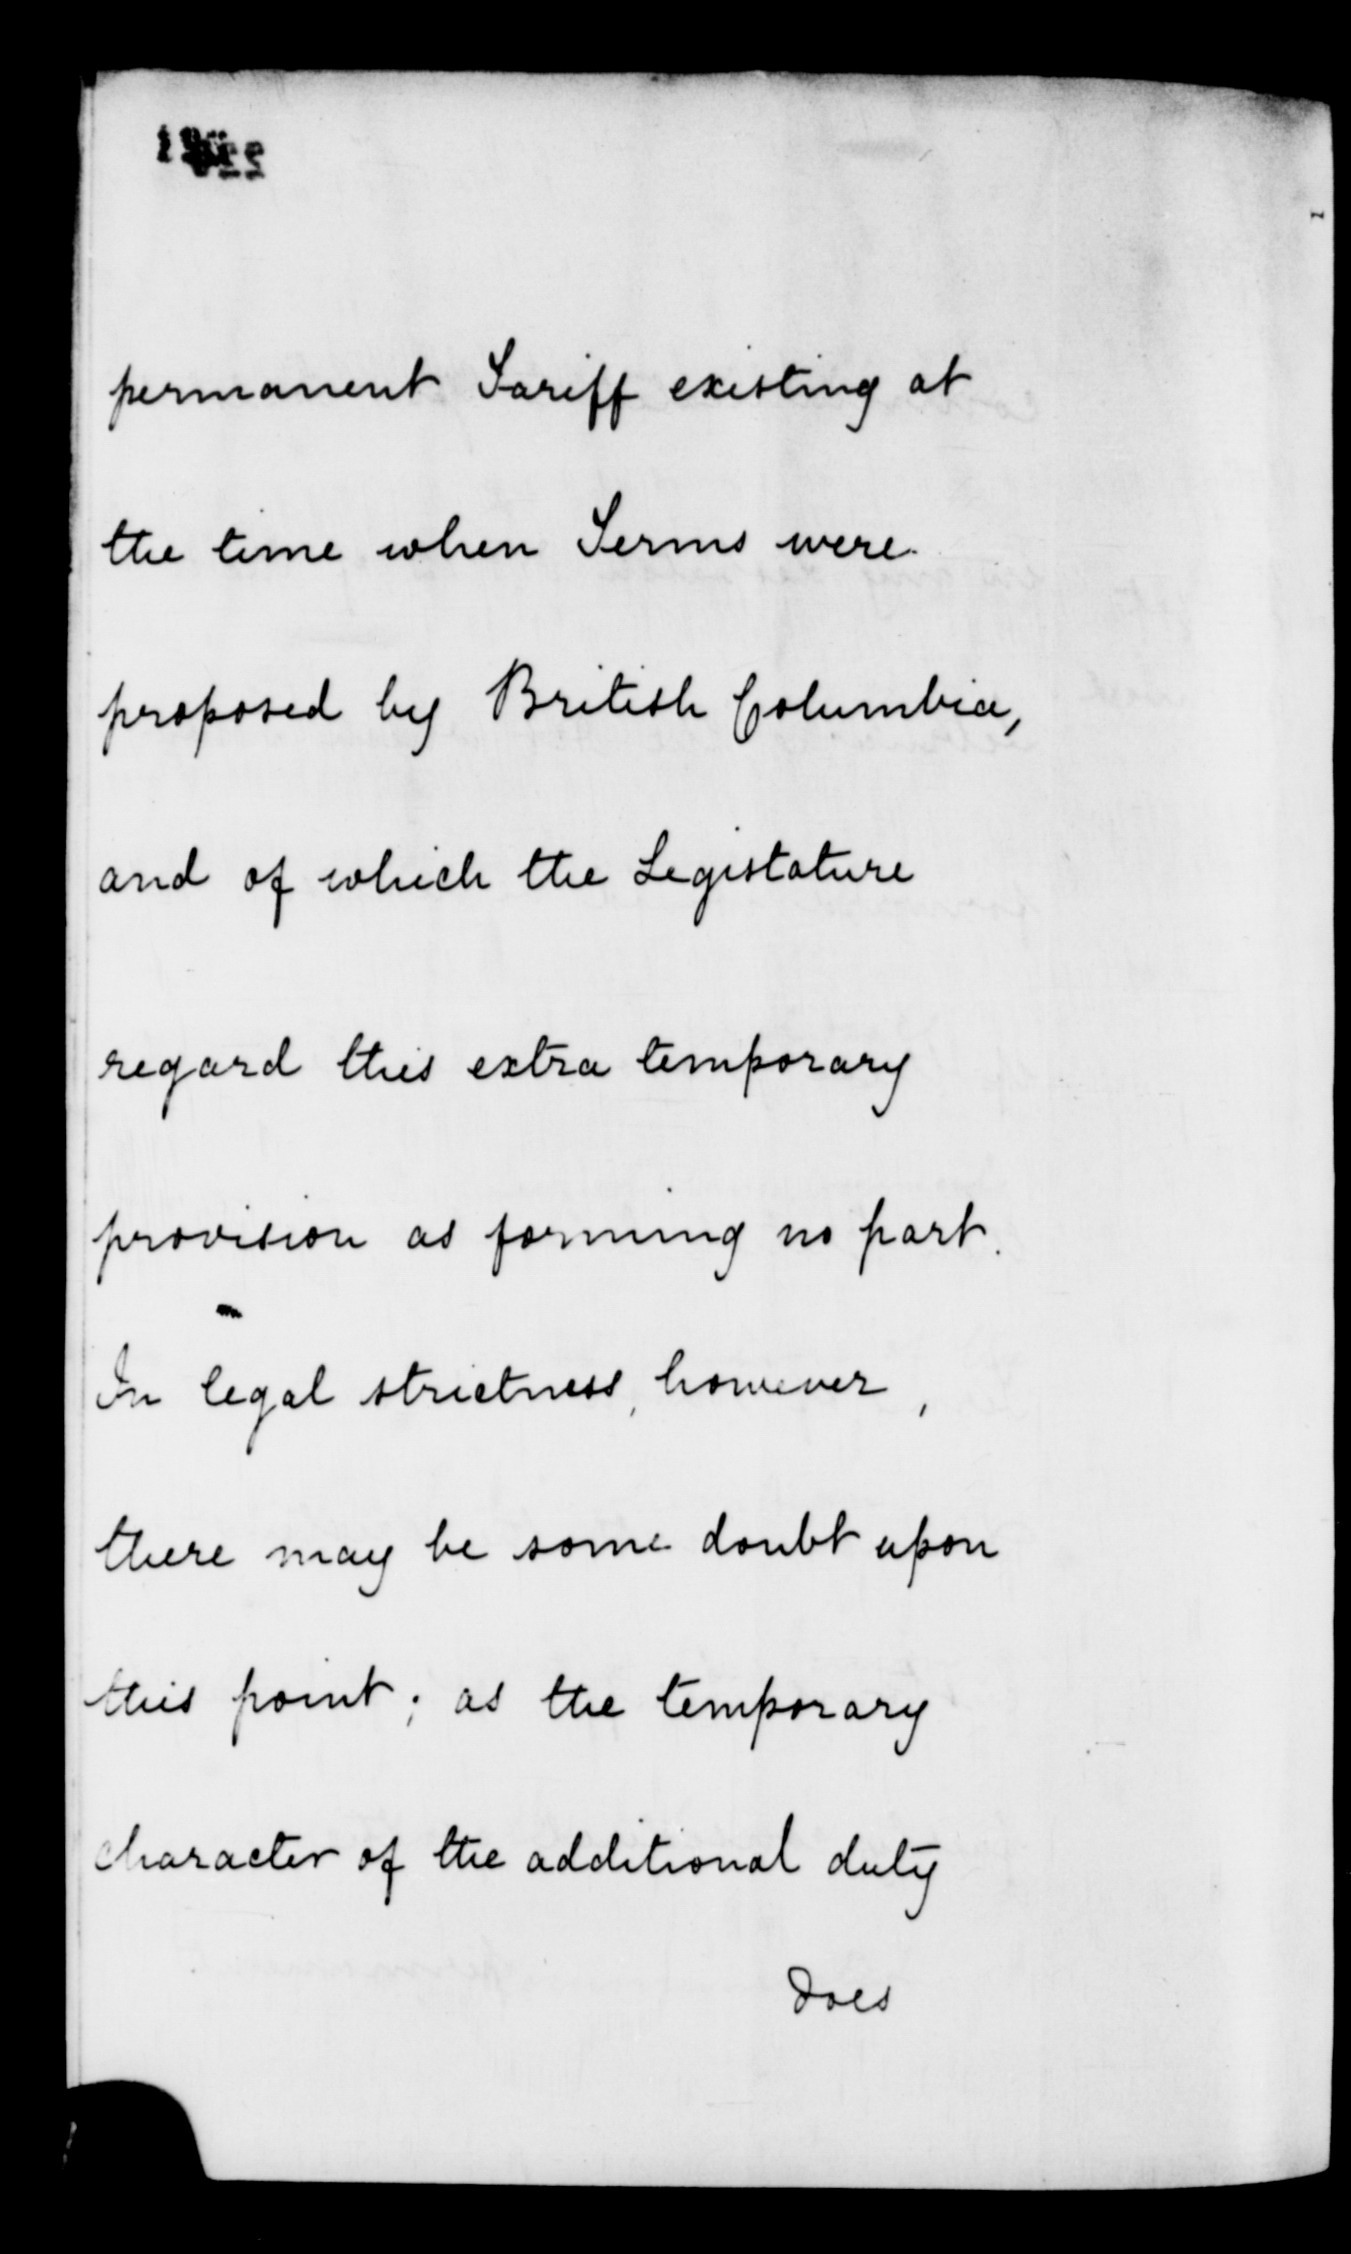 permanent Tariff existing at
the time when Terms were
proposed by British Columbia,
and of which the Legistature
regard this extra temporary
provision as forming no part.
In legal strictness, however,
there may be some doubt upon
this point; as the temporary
character of the additional duty
does